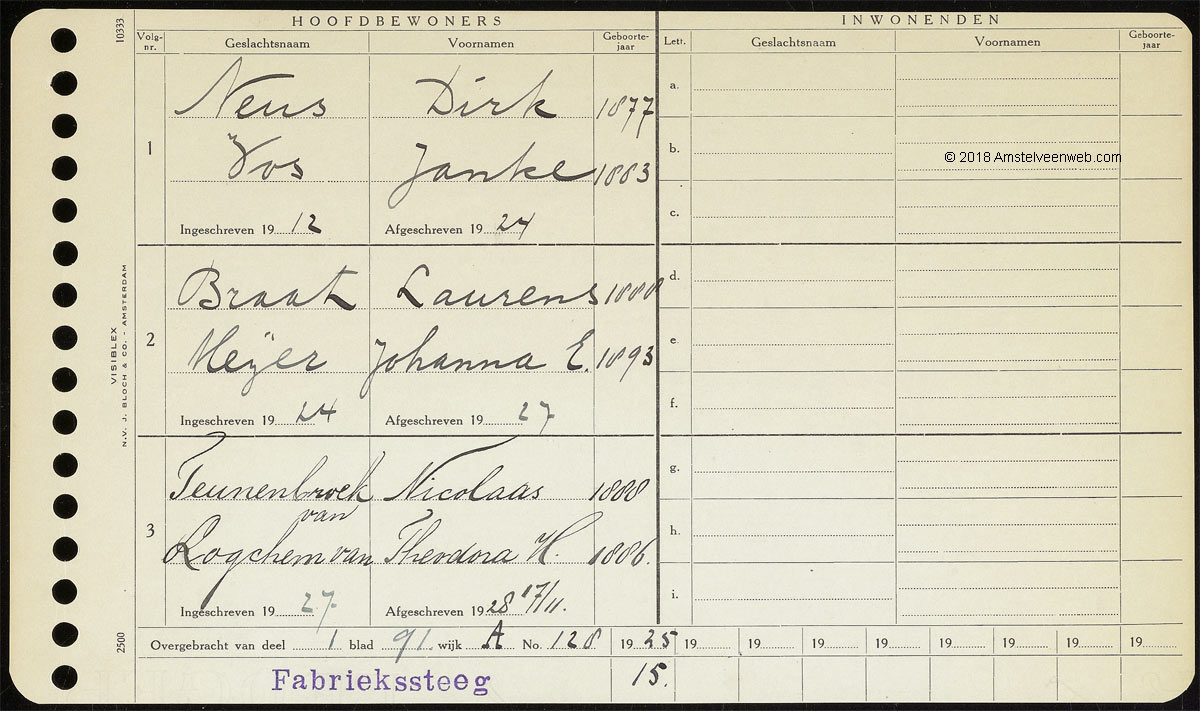 HOOFDBEWONERS
INWONENDEN
10333
Volg-nr.
Geslachtsnaam
Voornamen
Geboorte-jaar
Lett.
Geslachtsnaam
Voornamen
Geboorte-jaar
1
Neus Dirk 1877
Vos Janke 1883
Ingeschreven 19 12 Afgeschreven 19 24
2
Braat Laurens 1888
Meijer Johanna E. 1893
Ingeschreven 19 24 Afgeschreven 19 27
3
Teunenbroek van Nicolaas 1888
Logchem van Theodora H. 1886.
Ingeschreven 19 27. Afgeschreven 19 28 17/11.
a.
b.
© 2018 Amstelveenweb.com
c.
d.
e
f.
g.
h.
i.
VISIBLEX
N.V. J. BLOCH & CO. - AMSTERDAM
2500
Overgebracht van deel 1 blad 91. wijk A No. 128 19 25 19 19 19 19 19 19 19 19
Fabriekssteeg 15.